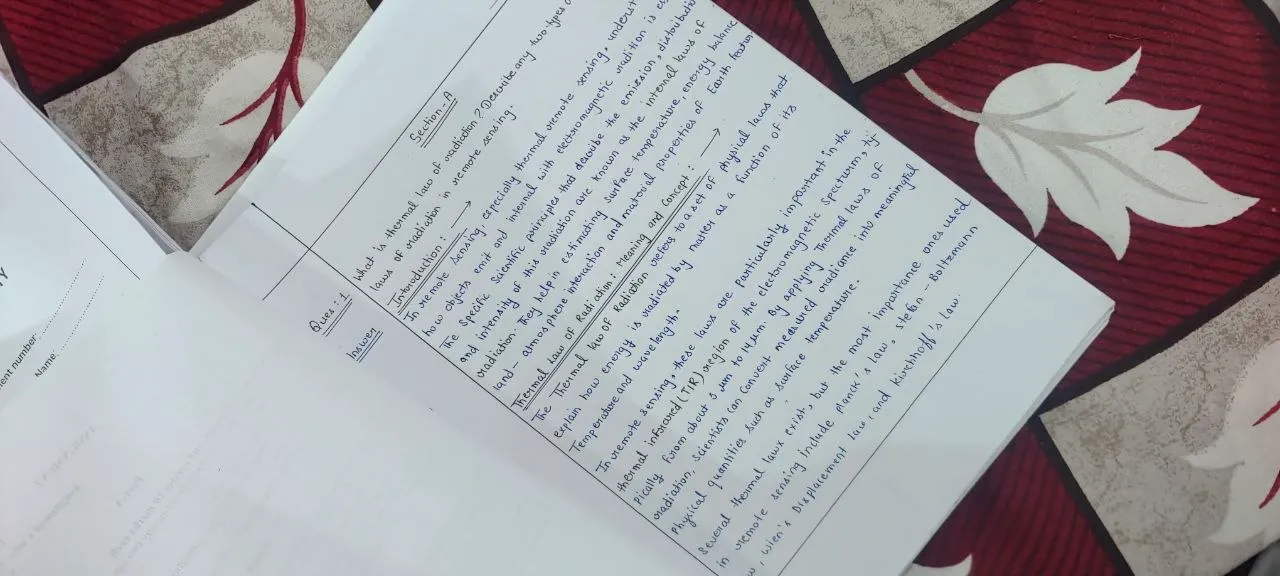 Section-A
Ques:1 What is thermal law of radiation? Describe any two types
laws of radiation in remote sensing.
Answer Introduction: →
In remote sensing, especially thermal remote sensing,
how objects emit and internal with electromagnetic radiation is
The Specific Scientific principles that describe the emission, distribution
and intensity of this radiation are known as the internal laws of
radiation. They help in estimating surface temperature, energy balance
land-atmosphere interaction and material properties of Earth
Thermal Law of Radiation: Meaning and Concept: →
The Thermal law of Radiation refers to a set of Physical laws that
explain how energy is radiated by matter as a function of its
Temperature and wavelength.
In remote sensing, these laws are particularly important in the
thermal infrared (TIR) region of the electromagnetic Spectrum, ty-
pically from about 3 μm to 14 μm. By applying Thermal laws of
radiation, scientists can convert measured radiance into meaningful
Physical quantities such as surface temperature.
Several thermal laws exist, but the most importance ones used
in remote sensing include Planck's law, stefan-Boltzmann
Wien's Displacement law, and Kirchhoff's law.
Name:
number